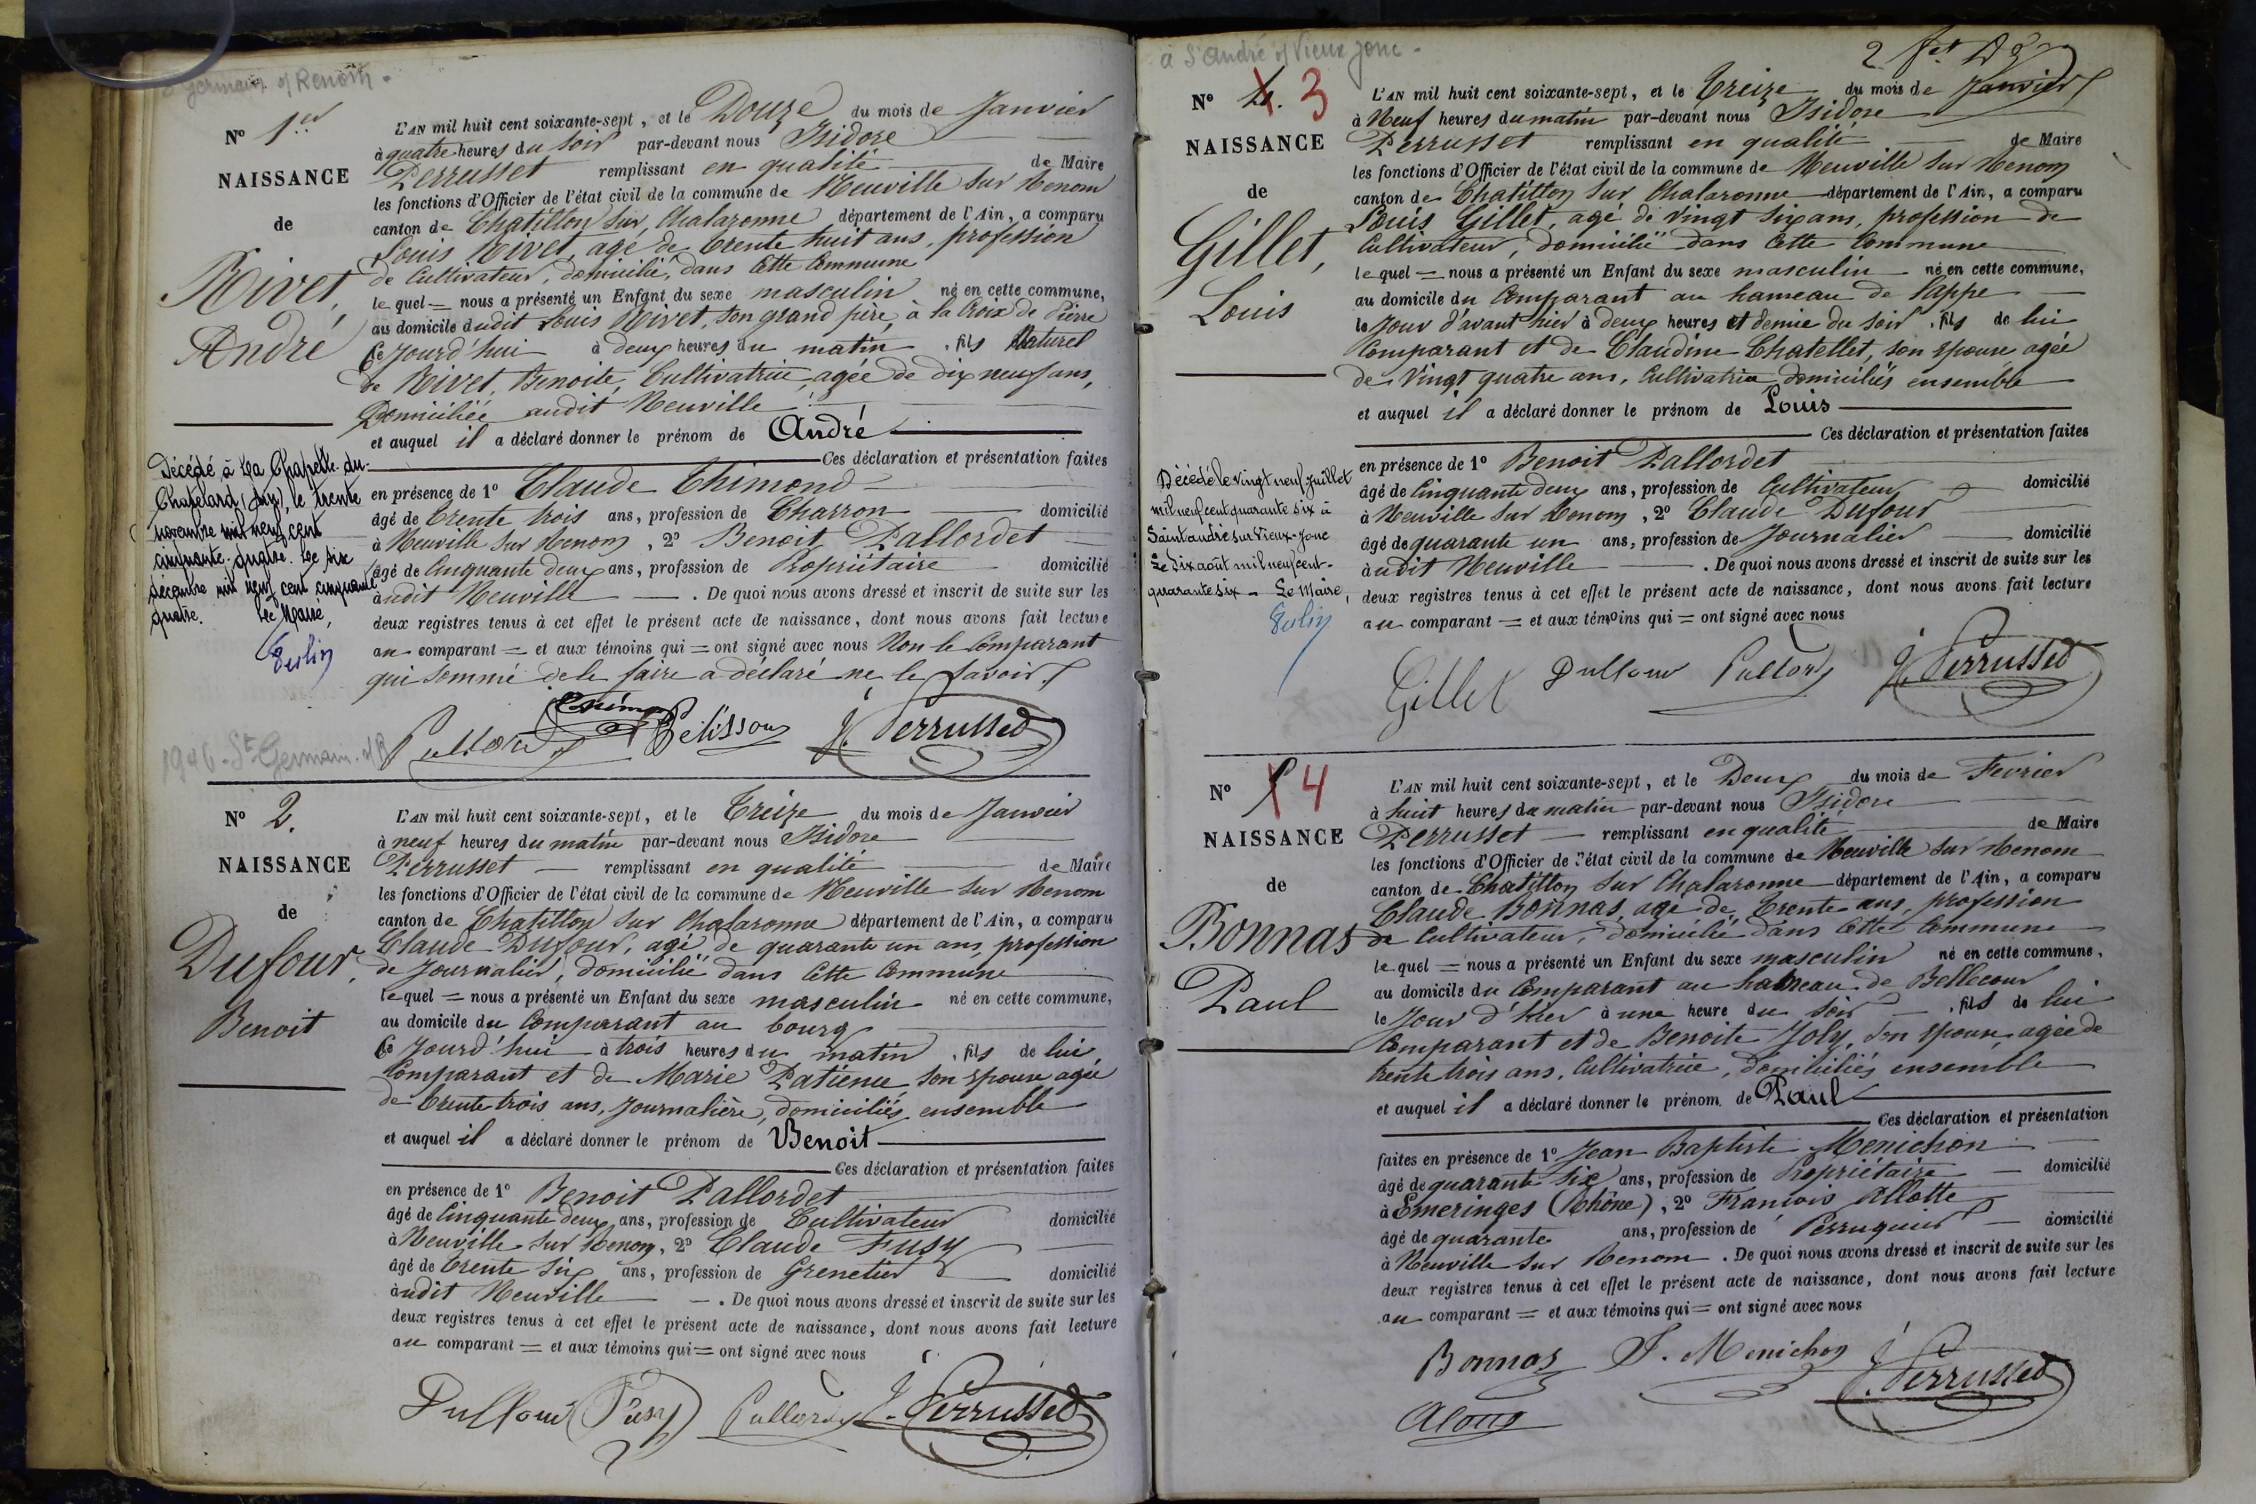 Germain s/ Renom.
N° 1er
NAISSANCE
de
Rivet,
André
L'AN mil huit cent soixante-sept, et le Douze du mois de Janvier
à quatre heures du soir par-devant nous Isidore
Perrusset remplissant en qualité de Maire
les fonctions d'Officier de l'état civil de la commune de Neuville sur Renom
canton de Chatillon sur Chalaronne département de l'Ain, a comparu
Louis Rivet, agé de trente huit ans, profession
de Cultivateur, domicilié, dans cette Commune
lequel = nous a présenté un Enfant du sexe masculin né en cette commune,
au domicile dudit Louis Rivet, son grand père, à la Croix de Pierre
ce Jourd'hui à deux heures du matin, fils Naturel
de Rivet, Benoite, Cultivatrice, agée de dix neuf ans,
Domiciliée audit Neuville
et auquel il a déclaré donner le prénom de André
Ces déclaration et présentation faites
en présence de 1° Claude Thimond
âgé de trente trois ans, profession de Charron domicilié
à Neuville sur Renom, 2° Benoit Pallordet
âgé de Cinquante deux ans, profession de Propriétaire domicilié
audit Neuville. De quoi nous avons dressé et inscrit de suite sur les
deux registres tenus à cet effet le présent acte de naissance, dont nous avons fait lecture
au comparant = et aux témoins qui = ont signé avec nous Non le Comparant
qui sommé de le faire a déclaré ne le savoir.
Pelisson J. Perrusset
Décédé à La Chapelle-du-
Chatelard (Ain), le trente
novembre mil neuf cent
cinquante-quatre. Le six
décembre mil neuf cent cinquante
quatre. Le Maire,
1946 - St Germain s/ R
N° 2.
NAISSANCE
de
Dufour,
Benoit
L'AN mil huit cent soixante-sept, et le Treize du mois de Janvier
à neuf heures du matin par-devant nous Isidore
Perrusset remplissant en qualité de Maire
les fonctions d'Officier de l'état civil de la commune de Neuville sur Renom
canton de Chatillon sur Chalaronne département de l'Ain, a comparu
Claude Dufour, agé de quarante un ans, profession
de Journalier, domicilié dans cette Commune
lequel = nous a présenté un Enfant du sexe masculin né en cette commune,
au domicile du Comparant au bourg
ce Jourd'hui à trois heures du matin, fils de lui
Comparant et de Marie Patience son épouse agée
de trente trois ans, Journalière, domiciliés ensemble
et auquel il a déclaré donner le prénom de Benoit
Ces déclaration et présentation faites
en présence de 1° Benoit Pallordet
âgé de Cinquante deux ans, profession de Cultivateur domicilié
à Neuville sur Renom, 2° Claude Fusy
âgé de trente six ans, profession de Grenetier domicilié
audit Neuville. De quoi nous avons dressé et inscrit de suite sur les
deux registres tenus à cet effet le présent acte de naissance, dont nous avons fait lecture
au comparant = et aux témoins qui = ont signé avec nous
Duffour Fusy Pallordet J. Perrusset
à St André s/ Vieux Jonc.
N° 4. 3
NAISSANCE
de
Gillet,
Louis
L'AN mil huit cent soixante-sept, et le Treize du mois de Janvier
à Neuf heures du matin par-devant nous Isidore
Perrusset remplissant en qualité de Maire
les fonctions d'Officier de l'état civil de la commune de Neuville sur Renom
canton de Chatillon sur Chalaronne département de l'Ain, a comparu
Louis Gillet, agé de vingt six ans, profession de
Cultivateur, domicilié dans cette Commune
lequel = nous a présenté un Enfant du sexe masculin né en cette commune,
au domicile du Comparant au hameau de Lappe
le Jour d'avant hier à deux heures et demie du soir, fils de lui
Comparant et de Claudine Chatellet, son épouse agée
de Vingt quatre ans, Cultivatrice domiciliés ensemble
et auquel il a déclaré donner le prénom de Louis
Ces déclaration et présentation faites
en présence de 1° Benoit Pallordet
âgé de Cinquante deux ans, profession de Cultivateur domicilié
à Neuville sur Renom, 2° Claude Dufour
âgé de quarante un ans, profession de Journalier domicilié
audit Neuville. De quoi nous avons dressé et inscrit de suite sur les
deux registres tenus à cet effet le présent acte de naissance, dont nous avons fait lecture
au comparant = et aux témoins qui = ont signé avec nous
Gillet Duffour Pallordet J. Perrusset
Décédé le vingt neuf juillet
mil neuf cent quarante six à
Saint andré sur Vieux-Jonc
Le dix août mil neuf cent-
quarante six - Le Maire,
N° 5 4
NAISSANCE
de
Bonnas
Paul
L'AN mil huit cent soixante-sept, et le Deux du mois de Fevrier
à huit heures du matin par-devant nous Isidore
Perrusset remplissant en qualité de Maire
les fonctions d'Officier de l'état civil de la commune de Neuville sur Renom
canton de Chatillon sur Chalaronne département de l'Ain, a comparu
Claude Bonnas, agé de trente ans, profession
de Cultivateur, domicilié dans cette Commune
lequel = nous a présenté un Enfant du sexe masculin né en cette commune,
au domicile du Comparant au hameau de Bellecour
le Jour d'hier à une heure du soir, fils de lui
Comparant et de Benoite Joly, son épouse, agée de
trente trois ans, Cultivatrice, domiciliés ensemble
et auquel il a déclaré donner le prénom de Paul
Ces déclaration et présentation
faites en présence de 1° Jean Baptiste Menichon
âgé de quarante six ans, profession de Propriétaire domicilié
à Emeringes (Rhône), 2° François Allotte
âgé de quarante ans, profession de Perruquier domicilié
à Neuville sur Renom. De quoi nous avons dressé et inscrit de suite sur les
deux registres tenus à cet effet le présent acte de naissance, dont nous avons fait lecture
au comparant = et aux témoins qui = ont signé avec nous
Bonnas J. Menichon J. Perrusset